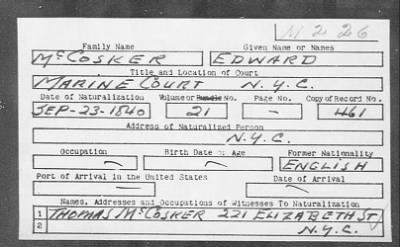 M 226
Family Name Given Name or Names
McCOSKER EDWARD
Title and Location of Court
MARINE COURT N.Y.C.
Date of Naturalization Volume or Bundle No. Page No. Copy of Record No.
SEP-23-1840 21 - 461
Address of Naturalized Person
N.Y.C.
Occupation Birth Date or Age Former Nationality
ENGLISH
Port of Arrival in the United States Date of Arrival
Names, Addresses and Occupations of Witnesses To Naturalization
1 THOMAS McCOSKER 221 ELIZABETH ST
2 N.Y.C.